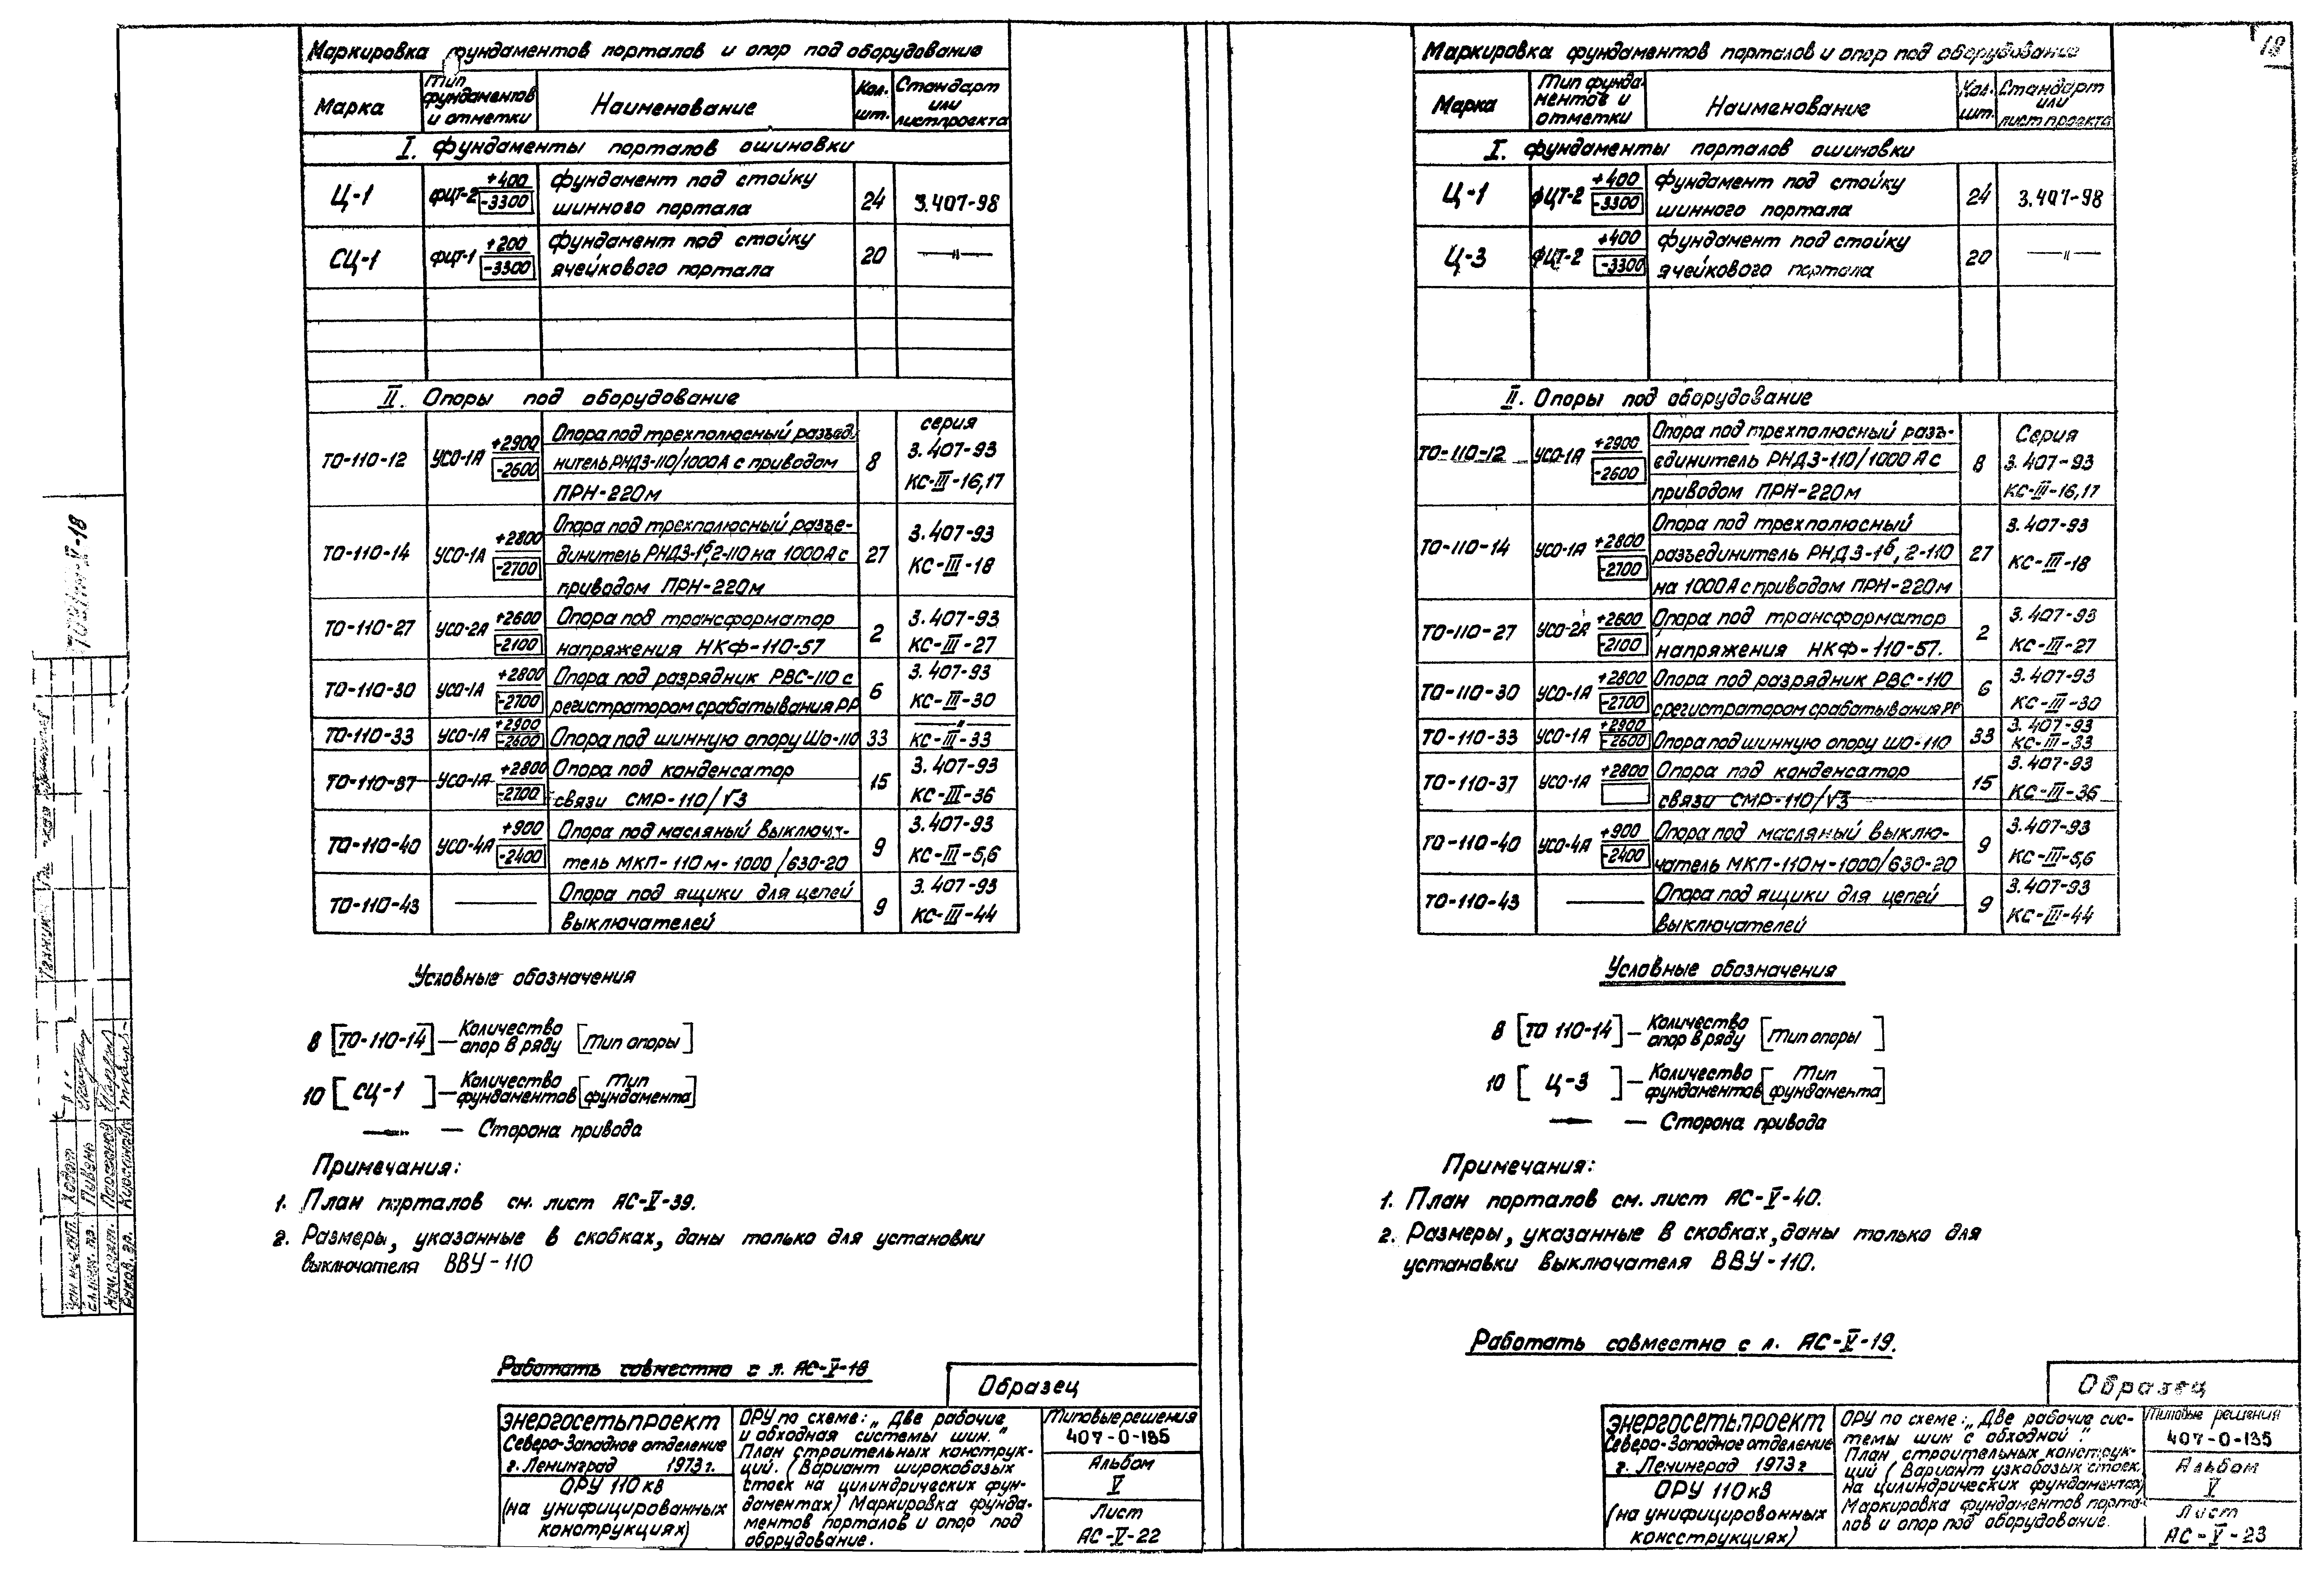 Маркировка фундаментов порталов и опор под оборудование
Марка
Тип
фундаментов
и отметки
Наименование
Кол.
шт.
Стандарт
или
лист проекта
I. Фундаменты порталов ошиновки
Ц-1
ФЦТ-2
+400
-3300
Фундамент под стойку
шинного портала
24
3.407-98
СЦ-1
ФЦТ-1
+200
-3300
Фундамент под стойку
ячейкового портала
20
—"—
II. Опоры под оборудование
ТО-110-12
УСО-1А
+2900
-2600
Опора под трехполюсный разъед.
нитель РНДЗ-110/1000А с приводом
ПРН-220м
8
серия
3.407-93
КС-III-16,17
ТО-110-14
УСО-1А
+2800
-2700
Опора под трехполюсный разъе-
динитель РНДЗ-1б,2-110 на 1000А с
приводом ПРН-220м
27
3.407-93
КС-III-18
ТО-110-27
УСО-2А
+2600
-2100
Опора под трансформатор
напряжения НКФ-110-57
2
3.407-93
КС-III-27
ТО-110-30
УСО-1А
+2800
-2700
Опора под разрядник РВС-110 с
регистратором срабатывания РР
6
3.407-93
КС-III-30
ТО-110-33
УСО-1А
+2900
-2600
Опора под шинную опору ШО-110
33
—"—
КС-III-33
ТО-110-37
УСО-1А
+2800
-2700
Опора под конденсатор
связи СМР-110/√3
15
3.407-93
КС-III-36
ТО-110-40
УСО-4А
+900
-2400
Опора под масляный выключа-
тель МКП-110м-1000/630-20
9
3.407-93
КС-III-5,6
ТО-110-43
Опора под ящики для цепей
выключателей
9
3.407-93
КС-III-44
Условные обозначения
8 [ТО-110-14] — Количество опор в ряду [Тип опоры]
10 [СЦ-1] — Количество фундаментов [Тип фундамента]
— Сторона привода
Примечания:
1. План порталов см. лист АС-V-39.
2. Размеры, указанные в скобках, даны только для установки
выключателя ВВУ-110
Работать совместно с л. АС-V-18
Образец
Энергосетьпроект
Северо-Западное отделение
г. Ленинград 1973г.
ОРУ 110 кв
(на унифицированных
конструкциях)
ОРУ по схеме: „Две рабочие
и обходная системы шин."
План строительных конструк-
ций. (Вариант широкобазых
стоек на цилиндрических фун-
даментах) Маркировка фунда-
ментов порталов и опор под
оборудование.
Типовые решения
407-0-135
Альбом
V
Лист
АС-V-22
18
Маркировка фундаментов порталов и опор под оборудование
Марка
Тип фунда-
ментов и
отметки
Наименование
Кол.
шт.
Стандарт
или
лист проекта
I. Фундаменты порталов ошиновки
Ц-1
ФЦТ-2
+400
-3300
Фундамент под стойку
шинного портала
24
3.407-98
Ц-3
ФЦТ-2
+400
-3300
Фундамент под стойку
ячейкового портала
20
—"—
II. Опоры под оборудование
ТО-110-12
УСО-1А
+2900
-2600
Опора под трехполюсный разъ-
единитель РНДЗ-110/1000 А с
приводом ПРН-220м
8
Серия
3.407-93
КС-III-16,17
ТО-110-14
УСО-1А
+2800
-2700
Опора под трехполюсный
разъединитель РНДЗ-1б, 2-110
на 1000А с приводом ПРН-220м
27
3.407-93
КС-III-18
ТО-110-27
УСО-2А
+2600
-2100
Опора под трансформатор
напряжения НКФ-110-57.
2
3.407-93
КС-III-27
ТО-110-30
УСО-1А
+2800
-2700
Опора под разрядник РВС-110
с регистратором срабатывания РР
6
3.407-93
КС-III-30
ТО-110-33
УСО-1А
+2900
-2600
Опора под шинную опору ШО-110
33
3.407-93
КС-III-33
ТО-110-37
УСО-1А
+2800
Опора под конденсатор
связи СМР-110/√3
15
3.407-93
КС-III-36
ТО-110-40
УСО-4А
+900
-2400
Опора под масляный выклю-
чатель МКП-110м-1000/630-20
9
3.407-93
КС-III-5,6
ТО-110-43
Опора под ящики для цепей
выключателей
9
3.407-93
КС-III-44
Условные обозначения
8 [ТО 110-14] — Количество опор в ряду [Тип опоры]
10 [Ц-3] — Количество фундаментов [Тип фундамента]
— Сторона привода
Примечания:
1. План порталов см. лист АС-V-40.
2. Размеры, указанные в скобках, даны только для
установки выключателя ВВУ-110.
Работать совместно с л. АС-V-19.
Образец
Энергосетьпроект
Северо-Западное отделение
г. Ленинград 1973г
ОРУ 110 кв
(на унифицированных
консструкциях)
ОРУ по схеме: „Две рабочие сис-
темы шин с обходной".
План строительных конструк-
ций (Вариант узкобазых стоек
на цилиндрических фундаментах)
Маркировка фундаментов порта-
лов и опор под оборудование.
Типовые решения
407-0-135
Альбом
V
Лист
АС-V-23
ТМ-V-18
Техник
Ховат
Нач. отд.
Руков. гр.